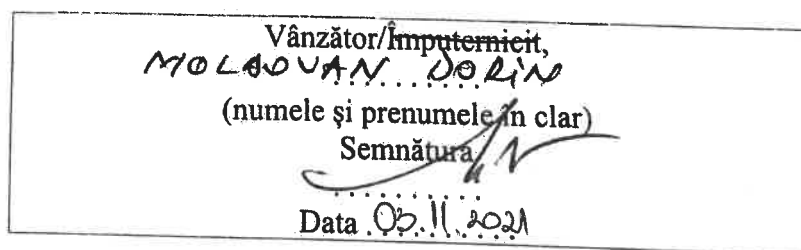 Vânzător/Împuternicit,
MOLDOVAN DORIN
(numele şi prenumele în clar)
Semnătura
Data 03.11.2021